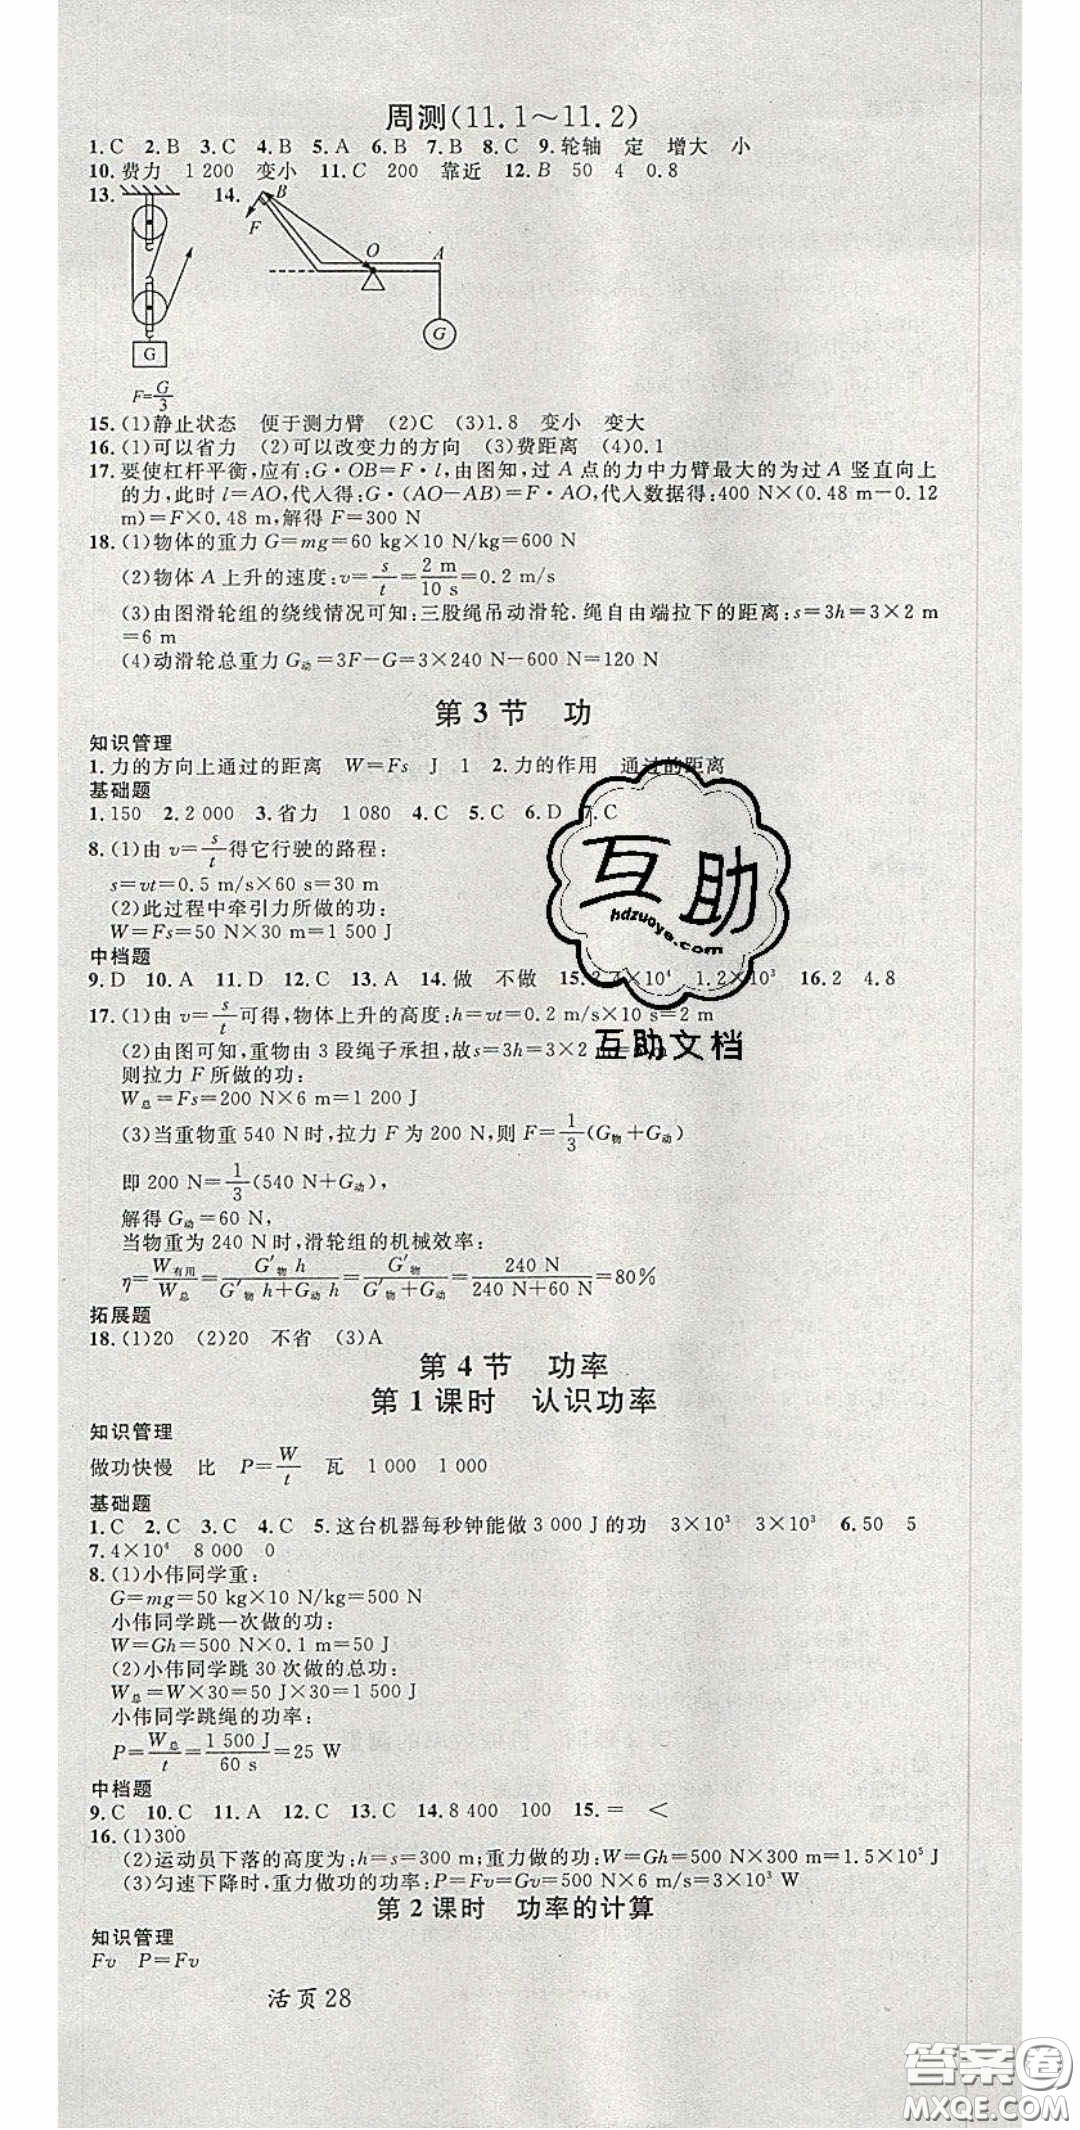 周测(11.1～11.2)
1.C 2.B 3.C 4.B 5.A 6.B 7.B 8.C 9.轮轴 定 增大 小
10.费力 1 200 变小 11.C 200 靠近 12.B 50 4 0.8
13. 14.
B
F
O
A
G
G
F=G/3
15.(1)静止状态 便于测力臂 (2)C (3)1.8 变小 变大
16.(1)可以省力 (2)可以改变力的方向 (3)费距离 (4)0.1
17.要使杠杆平衡,应有:G·OB=F·l,由图知,过 A 点的力中力臂最大的为过 A 竖直向上
的力,此时 l=AO,代入得:G·(AO−AB)=F·AO,代入数据得:400 N×(0.48 m−0.12
m)=F×0.48 m,解得 F=300 N
18.(1)物体的重力 G=mg=60 kg×10 N/kg=600 N
(2)物体 A 上升的速度:v=s/t=2 m/10 s=0.2 m/s
(3)由图滑轮组的绕线情况可知:三股绳吊动滑轮.绳自由端拉下的距离:s=3h=3×2 m
=6 m
(4)动滑轮总重力 G动=3F−G=3×240 N−600 N=120 N
第 3 节 功
知识管理
1.力的方向上通过的距离 W=Fs J 1 2.力的作用 通过的距离
基础题
1.150 2.2 000 3.省力 1 080 4.C 5.C 6.D 7.C
8.(1)由 v=s/t得它行驶的路程:
s=vt=0.5 m/s×60 s=30 m
(2)此过程中牵引力所做的功:
W=Fs=50 N×30 m=1 500 J
中档题
9.D 10.A 11.D 12.C 13.A 14.做 不做 15.2.4×10⁴ 1.2×10³ 16.2 4.8
17.(1)由 v=s/t可得,物体上升的高度:h=vt=0.2 m/s×10 s=2 m
(2)由图可知,重物由 3 段绳子承担,故s=3h=3×2 m=6 m
则拉力 F 所做的功:
W总=Fs=200 N×6 m=1 200 J
(3)当重物重 540 N时,拉力 F 为 200 N,则 F=1/3(G物+G动)
即 200 N=1/3(540 N+G动),
解得 G动=60 N,
当物重为 240 N时,滑轮组的机械效率:
η=W有用/W总=G′物 h/G′物 h+G动 h=G′物/G′物+G动=240 N/240 N+60 N=80%
拓展题
18.(1)20 (2)20 不省 (3)A
第 4 节 功率
第 1 课时 认识功率
知识管理
做功快慢 比 P=W/t 瓦 1 000 1 000
基础题
1.C 2.C 3.C 4.C 5.这台机器每秒钟能做 3 000 J 的功 3×10³ 3×10³ 6.50 5
7.4×10⁴ 8 000 0
8.(1)小伟同学重:
G=mg=50 kg×10 N/kg=500 N
小伟同学跳一次做的功:
W=Gh=500 N×0.1 m=50 J
(2)小伟同学跳 30 次做的总功:
W总=W×30=50 J×30=1 500 J
小伟同学跳绳的功率:
P=W总/t=1 500 J/60 s=25 W
中档题
9.C 10.C 11.A 12.C 13.C 14.8 400 100 15.= <
16.(1)300
(2)运动员下落的高度为:h=s=300 m;重力做的功:W=Gh=500 N×300 m=1.5×10⁵ J
(3)匀速下降时,重力做功的功率:P=Fv=Gv=500 N×6 m/s=3×10³ W
第 2 课时 功率的计算
知识管理
Fv P=Fv
活页 28
互助
hdzuoye.com
互助文档
答案圈
MXQE.COM